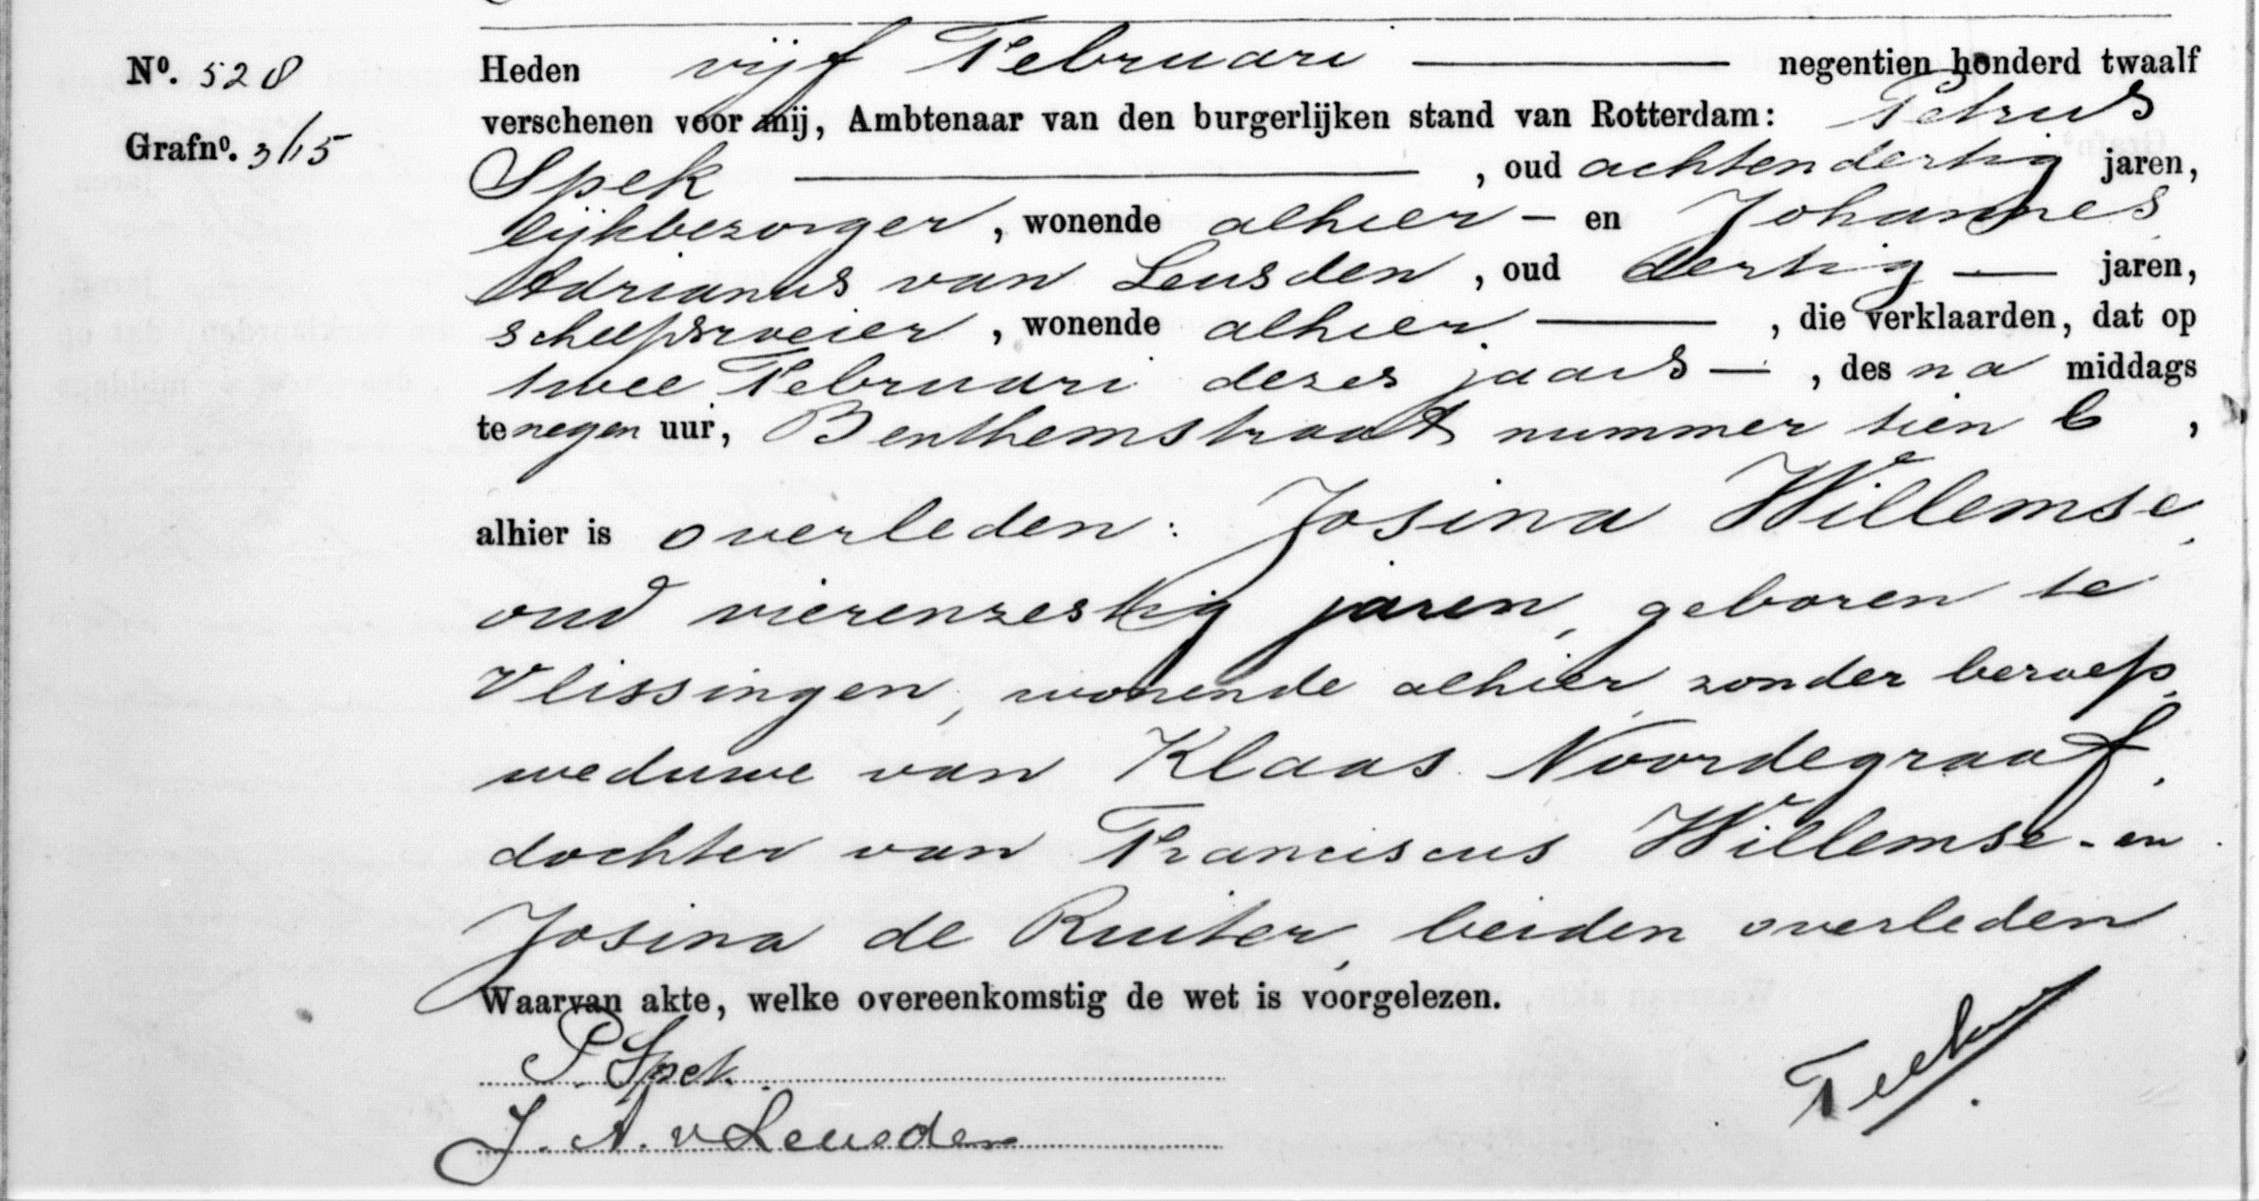 Nº. 528
Heden vijf Februari negentien honderd twaalf
verschenen voor mij, Ambtenaar van den burgerlijken stand van Rotterdam: Petrus
Grafnº. 3/15
Spek , oud achtendertig jaren,
lijkbezorger, wonende alhier - en Johannes
Adrianus van Leusden, oud dertig — jaren,
scheepsrveier, wonende alhier — , die verklaarden, dat op
twee Februari dezes jaars — , des na middags
te negen uur, Benthemstraat nummer tien b ,
alhier is overleden: Josina Willemse,
oud vierenzestig jaren, geboren te
Vlissingen, wonende alhier, zonder beroep,
weduwe van Klaas Noordegraaf,
dochter van Franciscus Willemse - en
Josina de Ruiter, beiden overleden
Waarvan akte, welke overeenkomstig de wet is voorgelezen.
P. Spek.
J. A. v Leusden